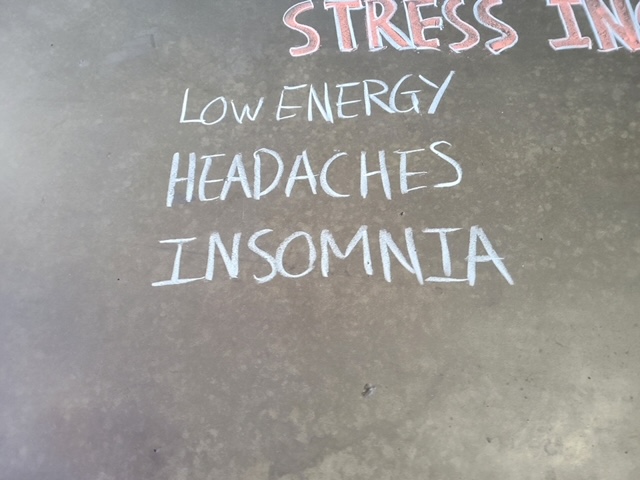 STRESS
LOW ENERGY
HEADACHES
INSOMNIA